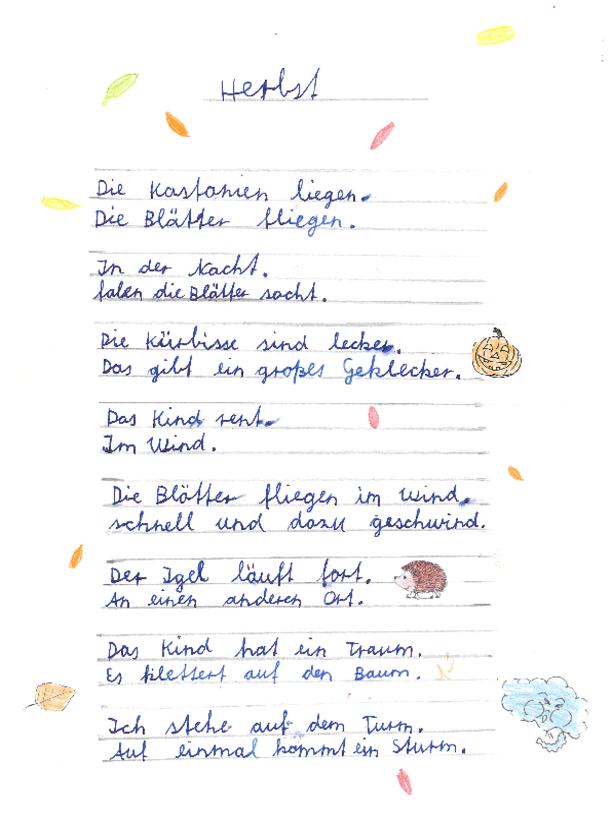 Herbst
Die Kastanien liegen.
Die Blätter fliegen.
In der Nacht.
falen die Blätter sacht.
Die Kürbisse sind lecker.
Das gibt ein großes Geklecker.
Das Kind rent.
Im Wind.
Die Blätter fliegen im Wind.
schnell und dazu geschwind.
Der Igel läuft fort.
An einen anderen Ort.
Das Kind hat ein Traum.
Es klettert auf den Baum.
Ich stehe auf dem Turm.
Auf einmal kommt ein Sturm.